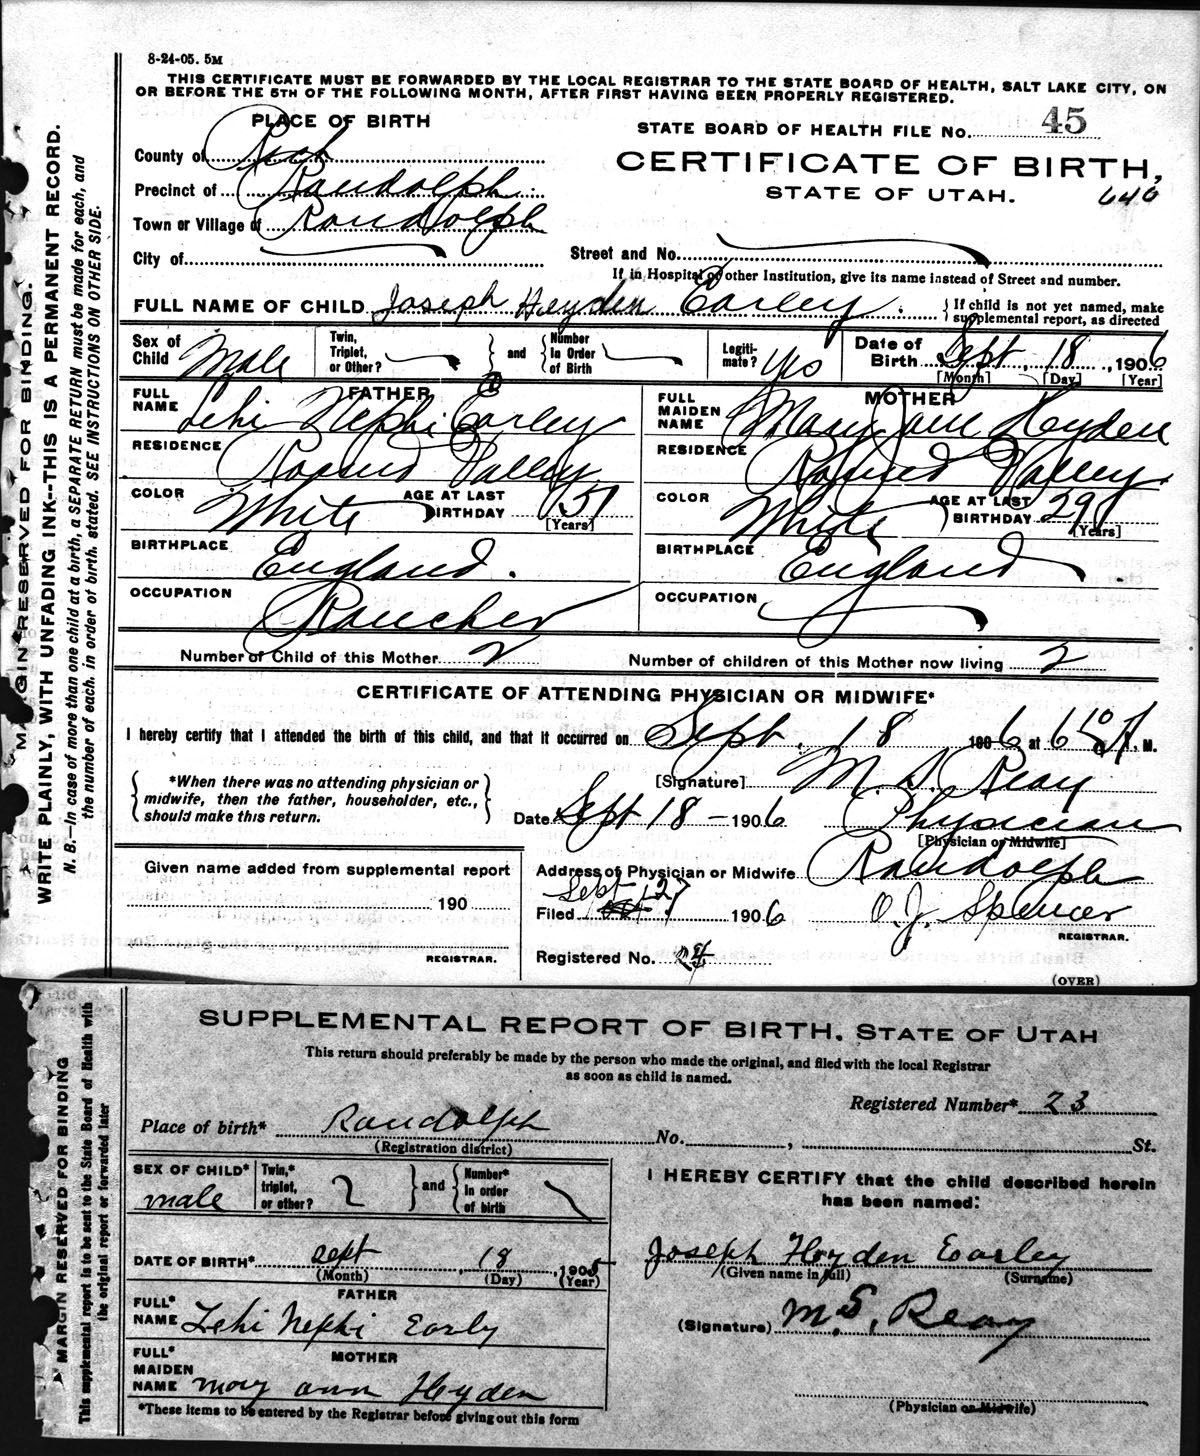 8-24-05. 5M
THIS CERTIFICATE MUST BE FORWARDED BY THE LOCAL REGISTRAR TO THE STATE BOARD OF HEALTH, SALT LAKE CITY, ON
OR BEFORE THE 5TH OF THE FOLLOWING MONTH, AFTER FIRST HAVING BEEN PROPERLY REGISTERED.
MARGIN RESERVED FOR BINDING.
WRITE PLAINLY, WITH UNFADING INK--THIS IS A PERMANENT RECORD.
N. B.—In case of more than one child at a birth, a SEPARATE RETURN must be made for each, and
the number of each, in order of birth, stated. SEE INSTRUCTIONS ON OTHER SIDE.
PLACE OF BIRTH
County of Rich
Precinct of Randolph
Town or Village of Randolph
City of
STATE BOARD OF HEALTH FILE No. 45
CERTIFICATE OF BIRTH,
STATE OF UTAH. 646
Street and No.
If in Hospital or other Institution, give its name instead of Street and number.
FULL NAME OF CHILD Joseph Heyden Earley
If child is not yet named, make
supplemental report, as directed
Sex of Child Male
Twin, Triplet, or Other? and Number In Order of Birth
Legiti-mate? Yes
Date of Birth Sept 18, 1906
[Month] [Day] [Year]
FATHER
FULL NAME Lehi Nephi Earley
RESIDENCE Round Valley
COLOR White AGE AT LAST BIRTHDAY 51
[Years]
BIRTHPLACE England.
OCCUPATION Rancher
MOTHER
FULL MAIDEN NAME Mary Jane Heyden
RESIDENCE Round Valley
COLOR White AGE AT LAST BIRTHDAY 29
[Years]
BIRTHPLACE England
OCCUPATION
Number of Child of this Mother 2
Number of children of this Mother now living 2
CERTIFICATE OF ATTENDING PHYSICIAN OR MIDWIFE*
I hereby certify that I attended the birth of this child, and that it occurred on Sept. 18 1906 at 6 10 A. M.
*When there was no attending physician or
midwife, then the father, householder, etc.,
should make this return.
[Signature] M. S. Reay
Date Sept 18 - 1906 Physician
[Physician or Midwife]
Given name added from supplemental report
190
REGISTRAR.
Address of Physician or Midwife Randolph
Filed Sept 27 1906 O. J. Spencer
REGISTRAR.
Registered No. 24
(OVER)
MARGIN RESERVED FOR BINDING
This supplemental report is to be sent to the State Board of Health with
the original report or forwarded later
SUPPLEMENTAL REPORT OF BIRTH, STATE OF UTAH
This return should preferably be made by the person who made the original, and filed with the local Registrar
as soon as child is named.
Registered Number* 23
Place of birth* Randolph No. , St.
(Registration district)
SEX OF CHILD* male
Twin,* triplet, or other? 2 and Number* in order of birth
DATE OF BIRTH* sept 18, 1906
(Month) (Day) (Year)
FATHER
FULL* NAME Lehi Nephi Early
MOTHER
FULL* MAIDEN NAME mary ann Heyden
*These items to be entered by the Registrar before giving out this form
I HEREBY CERTIFY that the child described herein
has been named:
Joseph Heyden Earley
(Given name in full) (Surname)
(Signature) M. S. Reay
(Physician or Midwife)